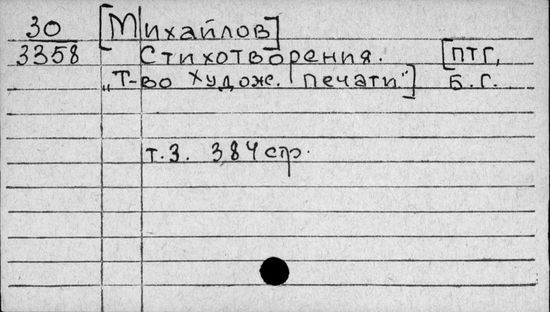 30 [Михайлов]
3358 Стихотворения. [ПТГ,
„Т-во Худож. Печати"] Б.Г.
т.3. 384 стр.